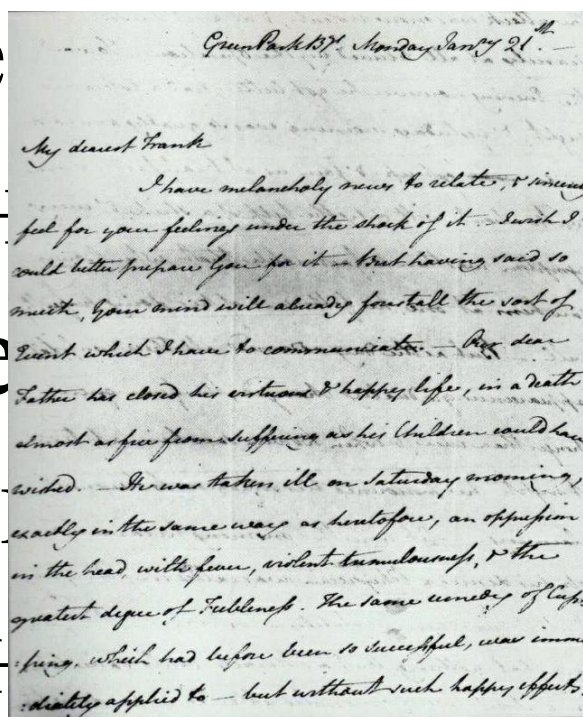 Green Park Bgs. Monday Janry 21st.
My dearest Frank
I have melancholy news to relate, & sincerely
feel for your feelings under the shock of it. I wish I
could better prepare You for it. But having said so
much, Your mind will already forestall the sort of
Event which I have to communicate. — Our dear
Father has closed his virtuous & happy life, in a death
almost as free from suffering as his Children could have
wished. — He was taken ill on Saturday morning,
exactly in the same way as heretofore, an oppression
in the head, with fever, violent tremulousness, & the
greatest degree of Feebleness. The same remedy of Cup-
:ping, which had before been so successful, was imme-
:diately applied to — but without such happy effects.